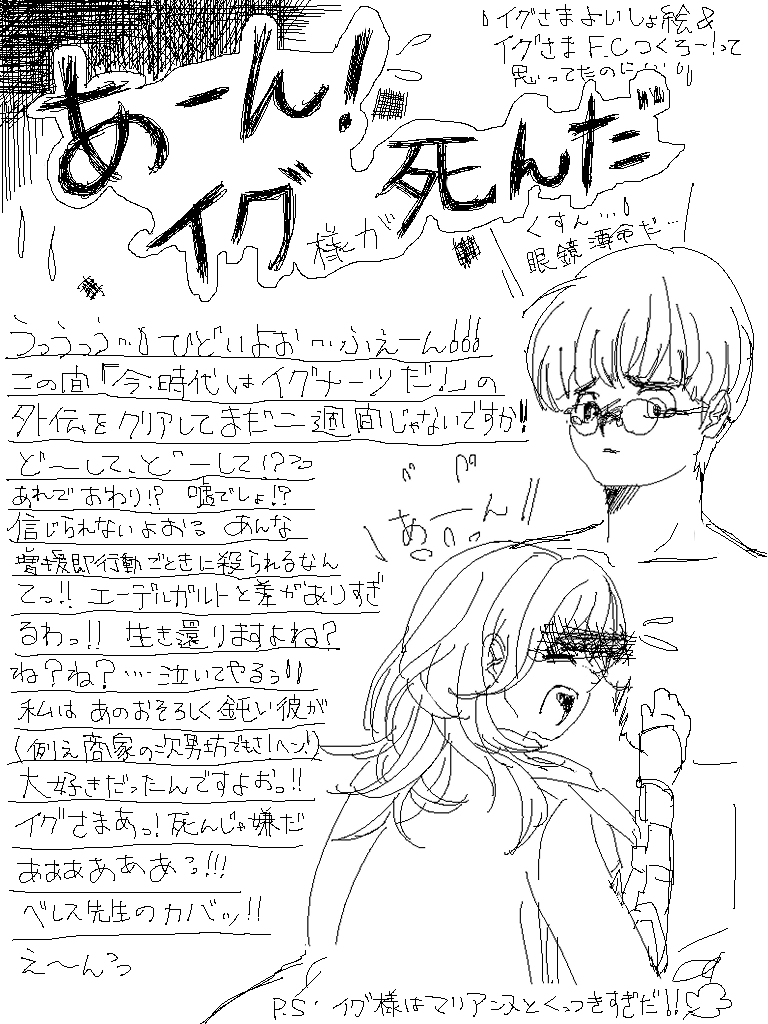 あーん！
イグ様が死んだ
イグさまよいしょ絵&
イグさまF.Cつくろー!って
思ってたのに…
くすん…
眼鏡薄命だ…
うっうっう…ひどいよお…ふえーん
この間「今、時代はイグナーツだ!」の
外伝をクリアしてまだ二週間じゃないですか!
ど〜して、ど〜して!?
あれでおわり!? 嘘でしょ!?
信じられないよおる あんな
増援即行動ごときに殺られるなん
てっ!! エーデルガルトと差がありすぎ
るわっ!! 生き還りますよね?
ね?ね?…泣いてやるぅ
私はあのおそろしく鈍い彼が
(例え商家の次男坊でもさ!ヘン!)
大好きだったんですよおっ!!
イグさまあっ! 死んじゃ嫌だ
ああああああっ!!!
ベレス先生のカバッ!!
え〜んっっ
あーん!!
P.S. イグ様はマリアンヌとくっつきすぎだ!!